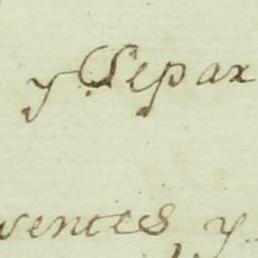 y Separ
ventes, y